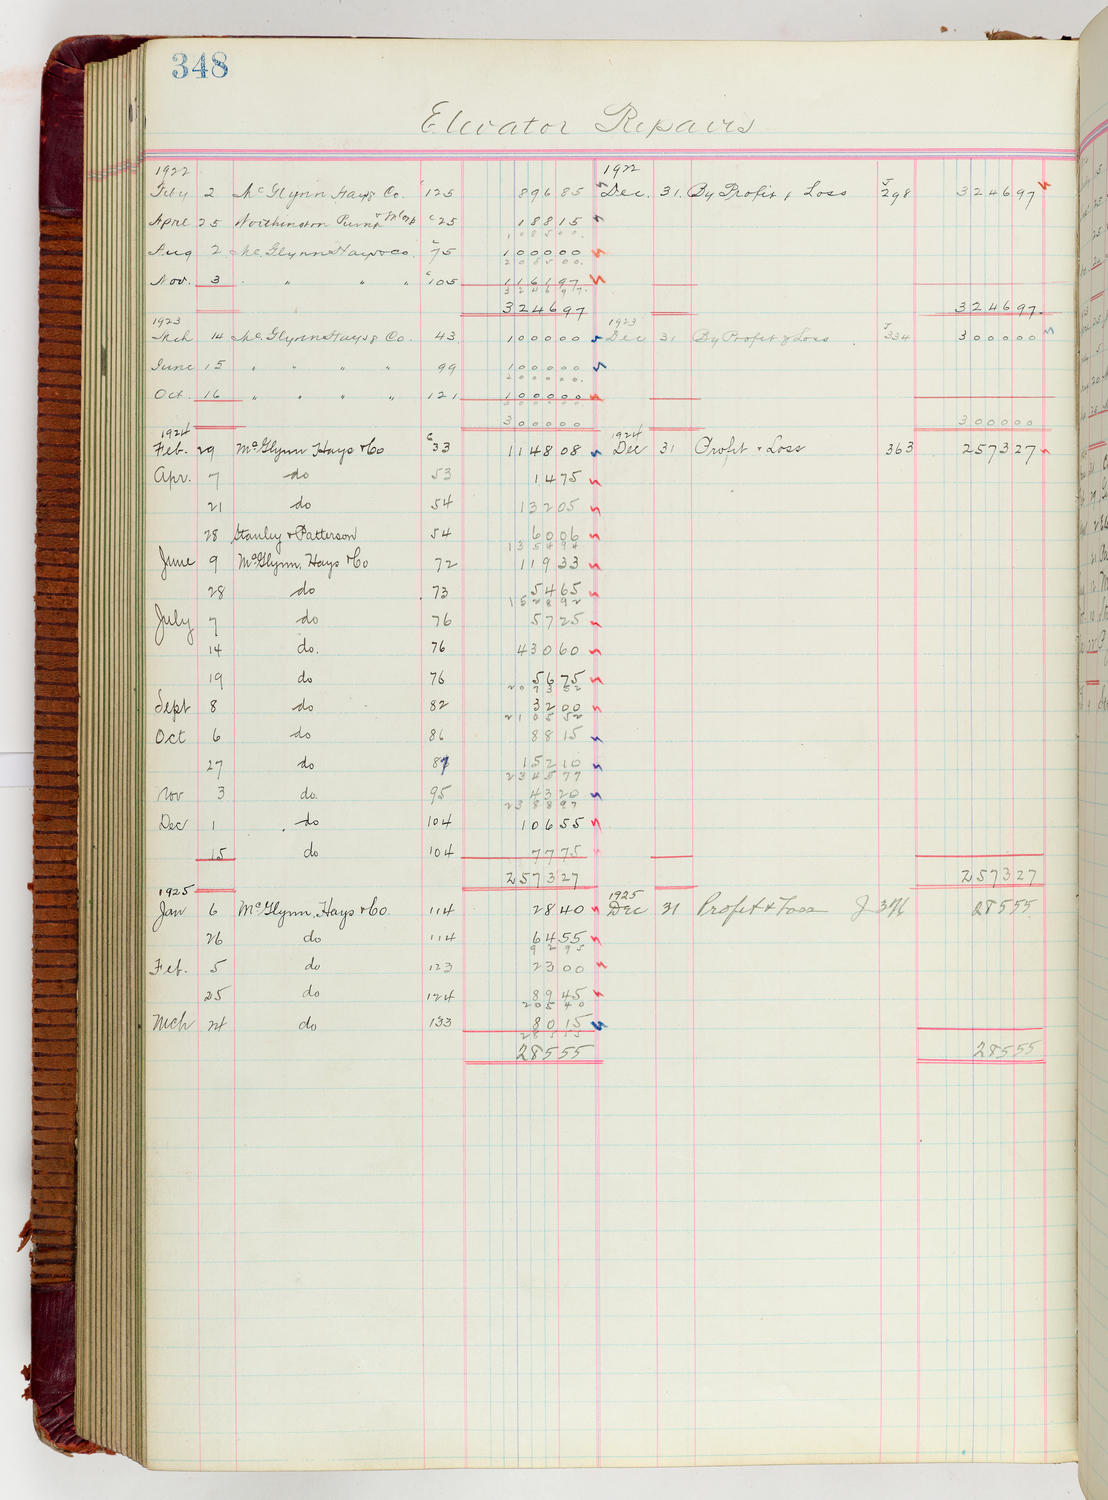 348
Elevator Repairs
1922 1922
Feby 2 McGlynn Hays Co. 125 896 85 Dec. 31. By Profit & Loss J 298 3246 97
April 25 Worthington Pump & Mcrp c 25 188 15
1085 00.
Aug 2 McGlynn Hays & Co. c 75 1000 00
2085 00.
Nov. 3 " " " " c 105 1161 97
3246 97.
3246 97 3246 97.
1923 1923
Mch 14 McGlynn Hays & Co. 43 1000 00 Dec 31 By Profit & Loss J 334 3000 00
June 15 " " " " 99 1000 00
2000 00.
Oct. 16 " " " " 121 1000 00
3000 00 3000 00
1924 1924
Feb. 29 McGlynn Hays & Co c 33 1148 08 Dec 31 Profit & Loss 363 2573 27
Apr. 7 do 53 14 75
21 do 54 132 05
28 Stanley & Patterson 54 60 06
1354 94
June 9 McGlynn, Hays & Co 72 119 33
28 do 73 54 65
1528 92
July 7 do 76 57 25
14 do. 76 430 60
19 do 76 56 75
2073 52
Sept 8 do 82 32 00
2105 52
Oct 6 do 86 88 15
27 do 87 152 10
2345 77
Nov 3 do. 95 43 20
2388 97
Dec 1 do 104 106 55
15 do 104 77 75
2573 27 2573 27
1925 1925
Jan 6 McGlynn, Hays & Co. 114 28 40 Dec 31 Profit & Loss J 376 285 55
26 do 114 64 55
92 95
Feb. 5 do 123 23 00
25 do 124 89 45
205 40
Mch do 133 80 15
285 55
285 55 285 55